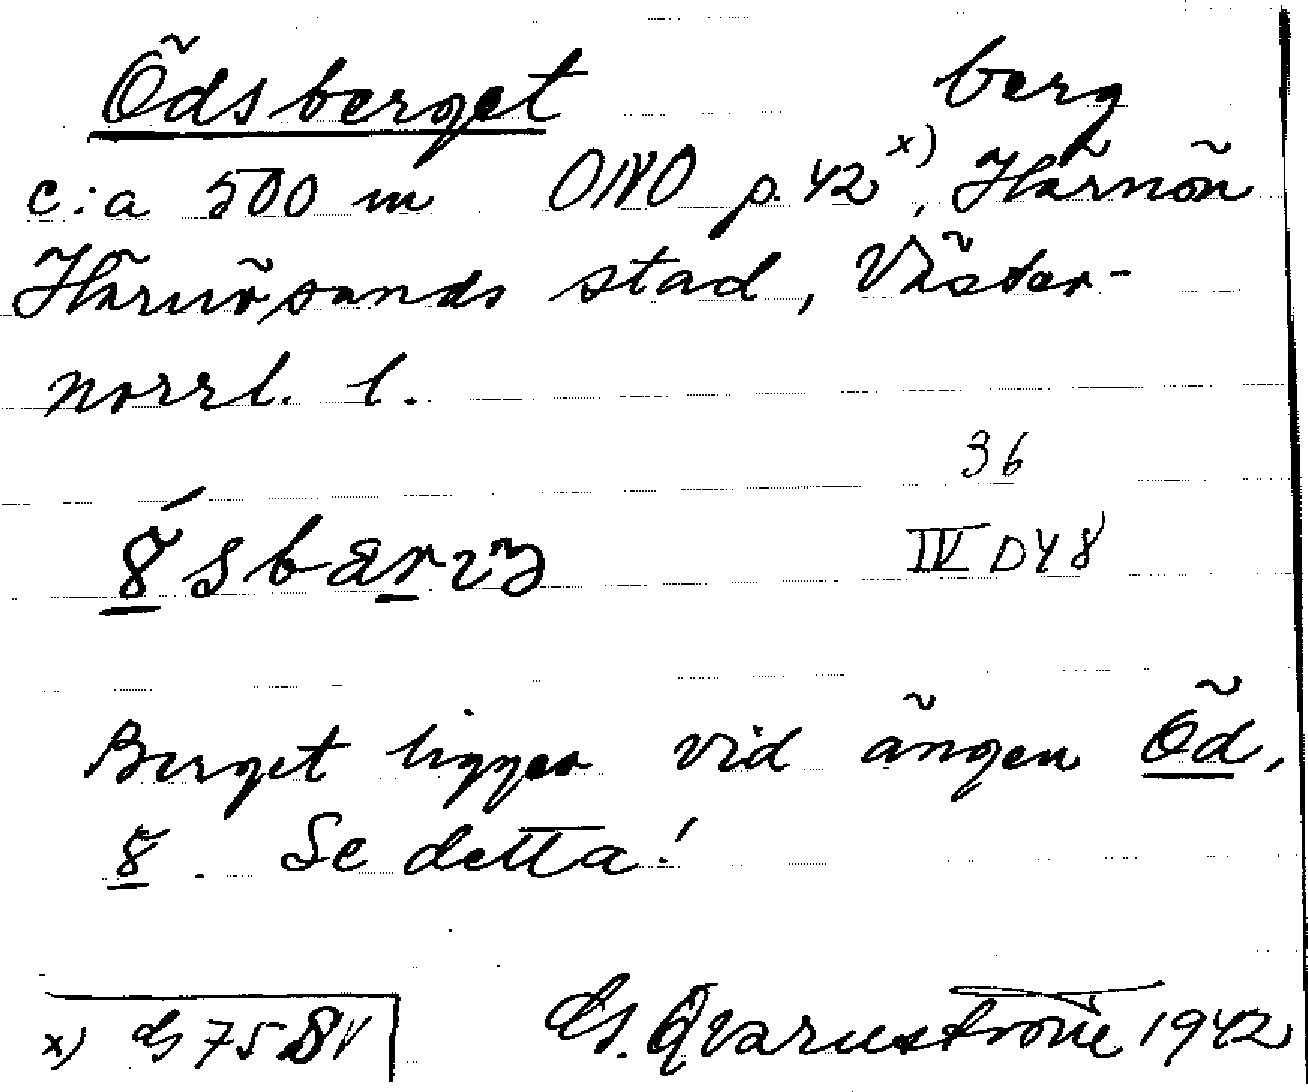 Ödsberget berg
c:a 500 m ONO p. 42 x), Härnön
Härnösands stad, Väster-
norrl. l.
36
IV D48
Berget ligger vid ängen Öd,
Se detta!
x) 75
G. Qvarnström 1942